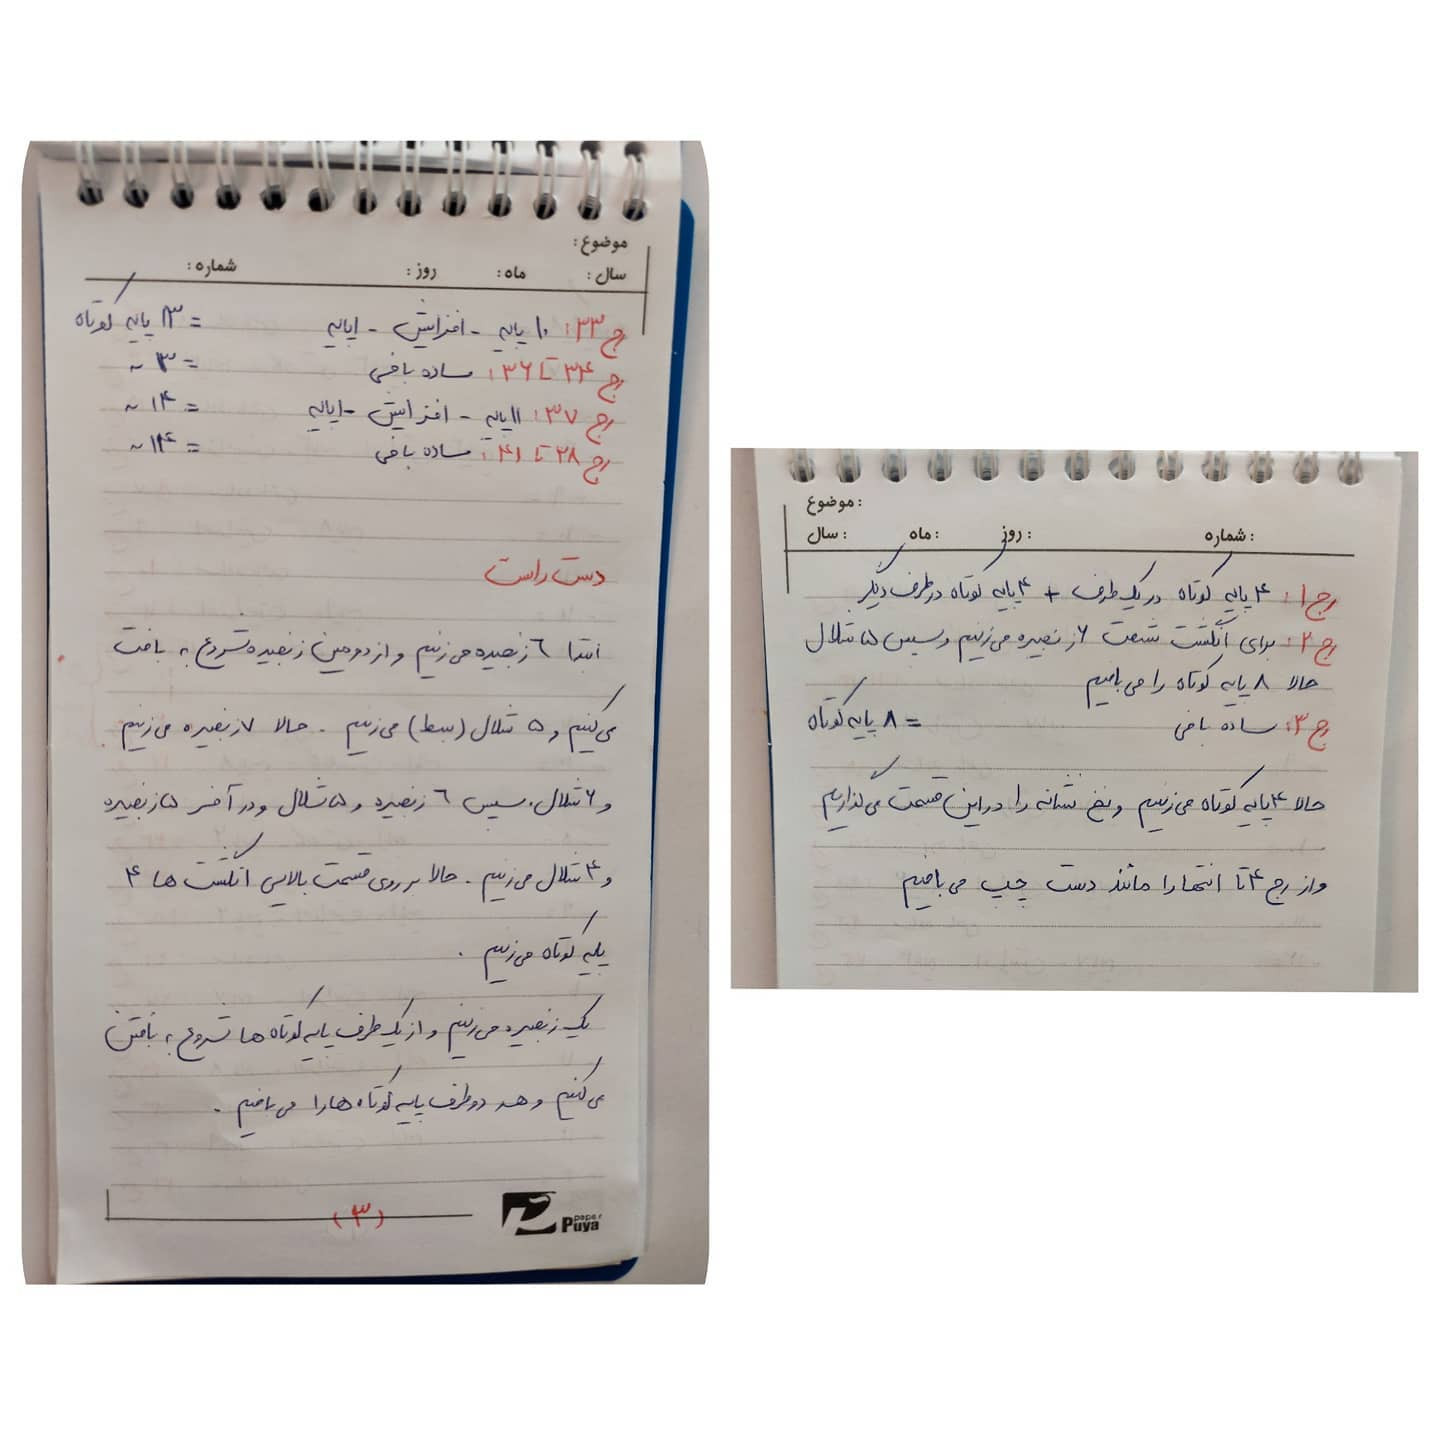 موضوع:
سال: ماه: روز: شماره:
رج ۳۳: ۱۰ پایه - افزایش - ۱ پایه = ۱۳ پایه کوتاه
رج ۳۴ تا ۳۶: ساده بافی = ۱۳ ~
رج ۳۷: ۱۱ پایه - افزایش - ۱ پایه = ۱۴ ~
رج ۳۸ تا ۴۱: ساده بافی = ۱۴ ~
دست راست
ابتدا ۶ زنجیره می‌زنیم و از دومین زنجیره شروع به بافت
می‌کنیم و ۵ شلال (بسط) می‌زنیم . حالا ۷ زنجیره می‌زنیم
و ۶ شلال. سپس ۶ زنجیره و ۵ شلال و در آخر ۵ زنجیره
و ۴ شلال می‌زنیم . حالا بر روی قسمت بالایی انگشت ها ۴
پایه کوتاه می‌زنیم .
یک زنجیره می‌زنیم و از یک طرف پایه کوتاه ها شروع به بافتن
می‌کنیم و هر دو طرف پایه کوتاه ها را می‌بافیم .
(۳)
paper Puya
موضوع:
سال: ماه: روز: شماره:
رج ۱: ۴ پایه کوتاه در یک طرف + ۴ پایه کوتاه در طرف دیگر
رج ۲: برای انگشت شست ۶ زنجیره می‌زنیم و سپس ۵ شلال
حالا ۸ پایه کوتاه را می‌بافیم
رج ۳: ساده بافی = ۸ پایه کوتاه
حالا ۴ پایه کوتاه می‌زنیم و نخ نشانه را در این قسمت می‌گذاریم
و از رج ۴ تا انتها را مانند دست چپ می‌بافیم